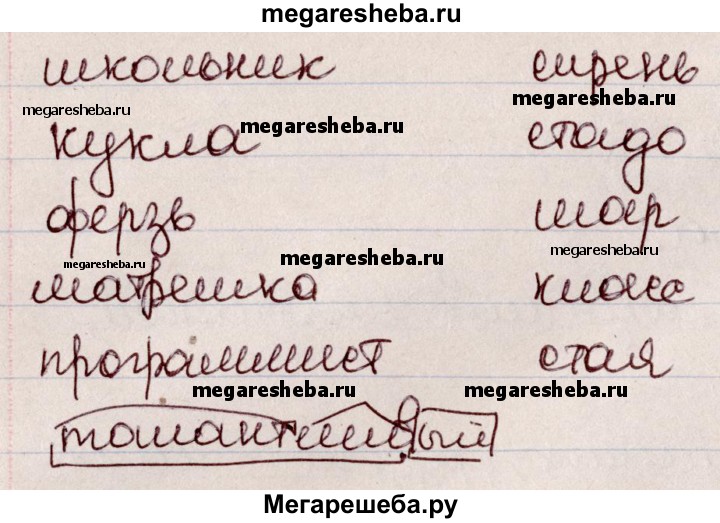 megaresheba.ru
школьник сирень
megaresheba.ru megaresheba.ru
кукла megaresheba.ru стадо
ферзь megaresheba.ru шар
megaresheba.ru megaresheba.ru megaresheba.ru
матрешка киоск
программист стая
megaresheba.ru megaresheba.ru
талантливый
Мегарешеба.ру